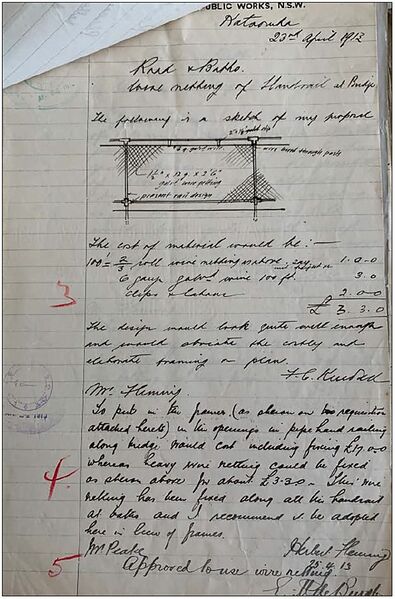 PUBLIC WORKS, N.S.W.
23rd April 1913
Road & Baths.
Wire netting of Handrail at Bridge
The following is a sketch of my proposal
2" x 1/8" galvd clip
6 g. galvd wire
wire bored through posts
1½" x 17 g. x 3' 6"
galvd wire netting
present rail design
The cost of material would be :-
100' = 2/3 roll wire netting as above, say 1. 0. 0
6 gauge galvd wire 100 ft. 3. 0
clips & labour 2. 0. 0
£ 3. 3. 0
3
The design would look quite well enough
and would obviate the costly and
elaborate framing on plan.
Mr Fleming
To put in the frames (as shown on requisition
attached hereto) in the openings in pipe hand railing
along bridge would cost including fixing £17.0.0
whereas heavy wire netting could be fixed
as shown above for about £3.3.0 - This wire
netting has been fixed along all the handrail
4.
at baths and I recommend it be adopted
here in lieu of frames.
Herbert Fleming
25.4.13
5
Mr Peake
Approved to use wire netting.
E. M. de Burgh